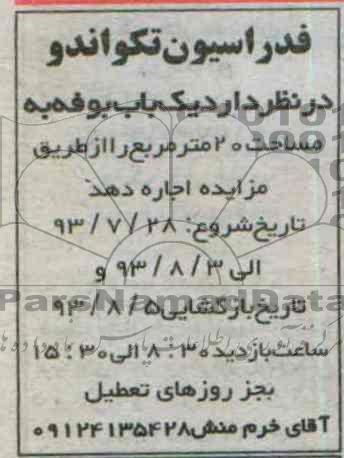 فدراسیون تکواندو
در نظر دارد یک باب بوفه به
مساحت ۲۰ متر مربع را از طریق
مزایده اجاره دهد
تاریخ شروع: ۹۳/۷/۲۸
الی ۹۳/۸/۳ و
تاریخ بازگشایی ۹۳/۸/۵
ساعت بازدید ۸:۳۰ الی ۱۵:۳۰
بجز روزهای تعطیل
آقای خرم منش ۰۹۱۲۴۱۳۵۴۲۸
ParsNamadData